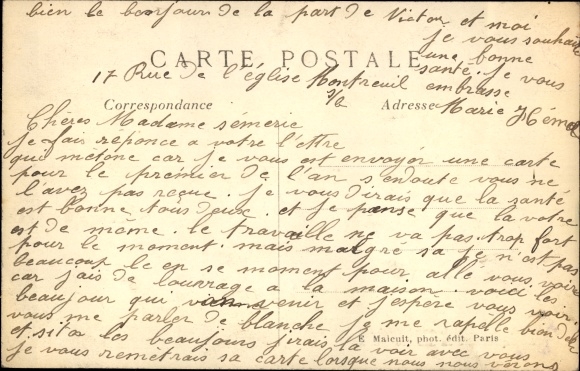 bien le bonjour de la part de Victor et moi
je vous souhaite
une bonne
santé. je vous
embrasse
CARTE POSTALE
17 Rue de l'église Montreuil
s/b
Marie Hémer
Correspondance
Adresse
Chères Madame sémerie
je fair réponce a votre l'ettre
qui métone car je vous est envoyér une carte
pour le premier de l'an s'endoute vous ne
l'avez pas reçue. je vous dirais que la santé
est bonne tous deux. et je panse que la votre
est de même. le travaille ne va pas trop fort
pour le moment. mais malgré sa je n'est pas
beaucoup le en se moment pour allé vous voir
car jais de louvrage a la maison. voici les
beaujour qui vien venir et j'espère vous voir
vous me parler de blanche je me rapelle bien
et sitôt les beaujours j'irais la voir avec vous
E Malcuit, phot. édit. Paris
je vous remétrais sa carte lorsque nous nous verons